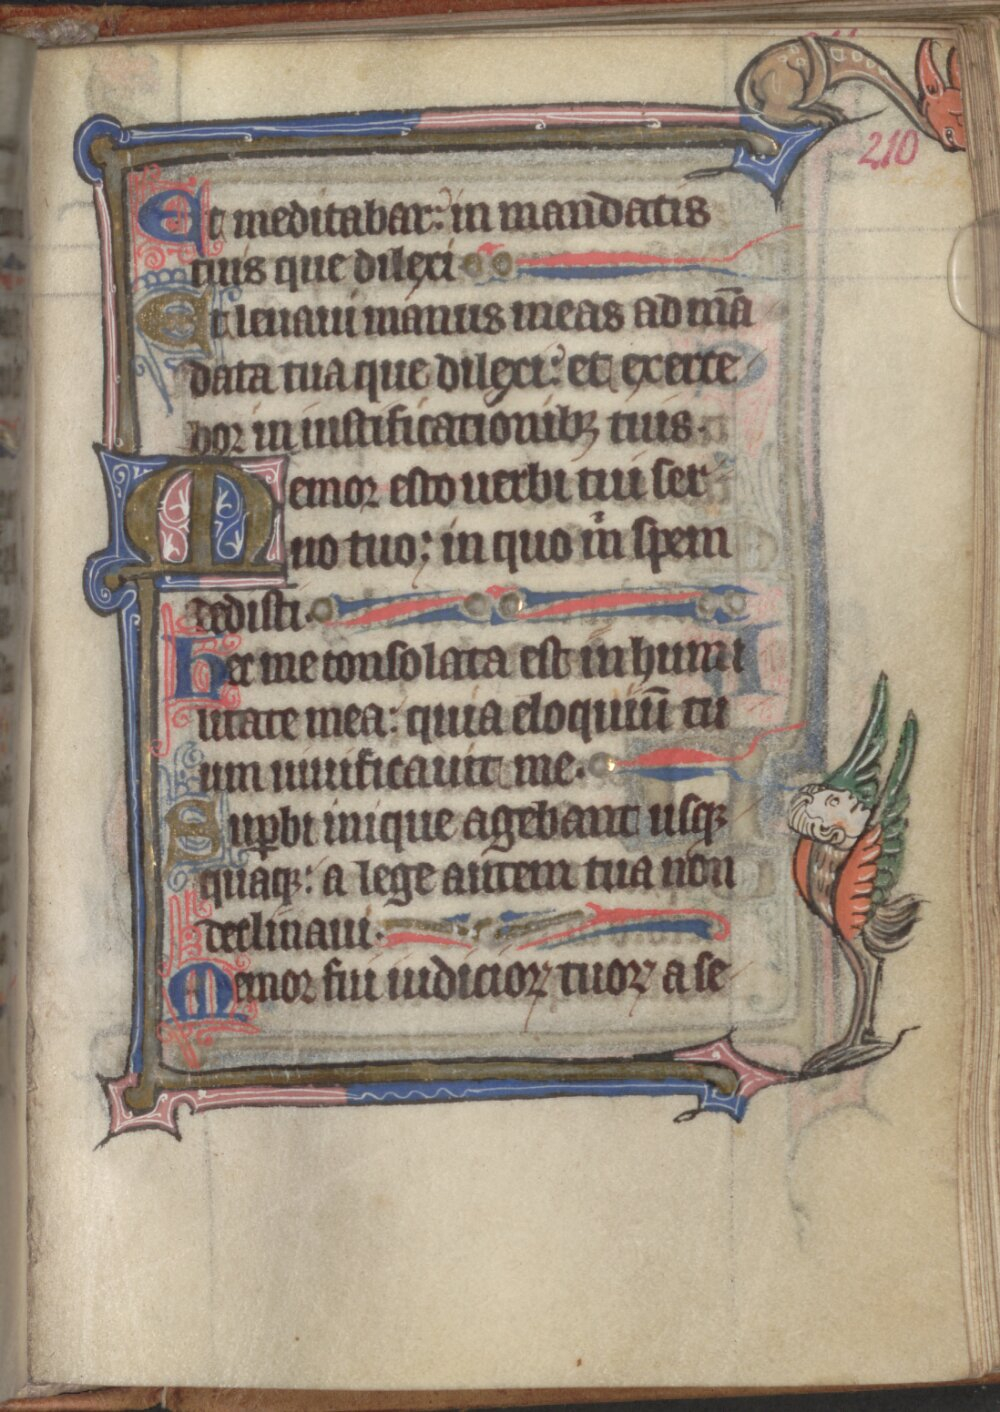 210
Et meditabar: in mandatis
tuis que dilexi
Et leuaui manus meas ad mā
data tua que dilexi: et exerce
bor in iustificationibꝫ tuis.
Memor esto uerbi tui ser
uo tuo: in quo m̍ spem
dedisti.
Hec me consolata est in humi
litate mea: quia eloquiū tu
um uiuificauit me.
Suꝑbi inique agebant usqꝫ
quaqꝫ: a lege autem tua non
declinaui.
Memor fui iudicioꝝ tuoꝝ a se